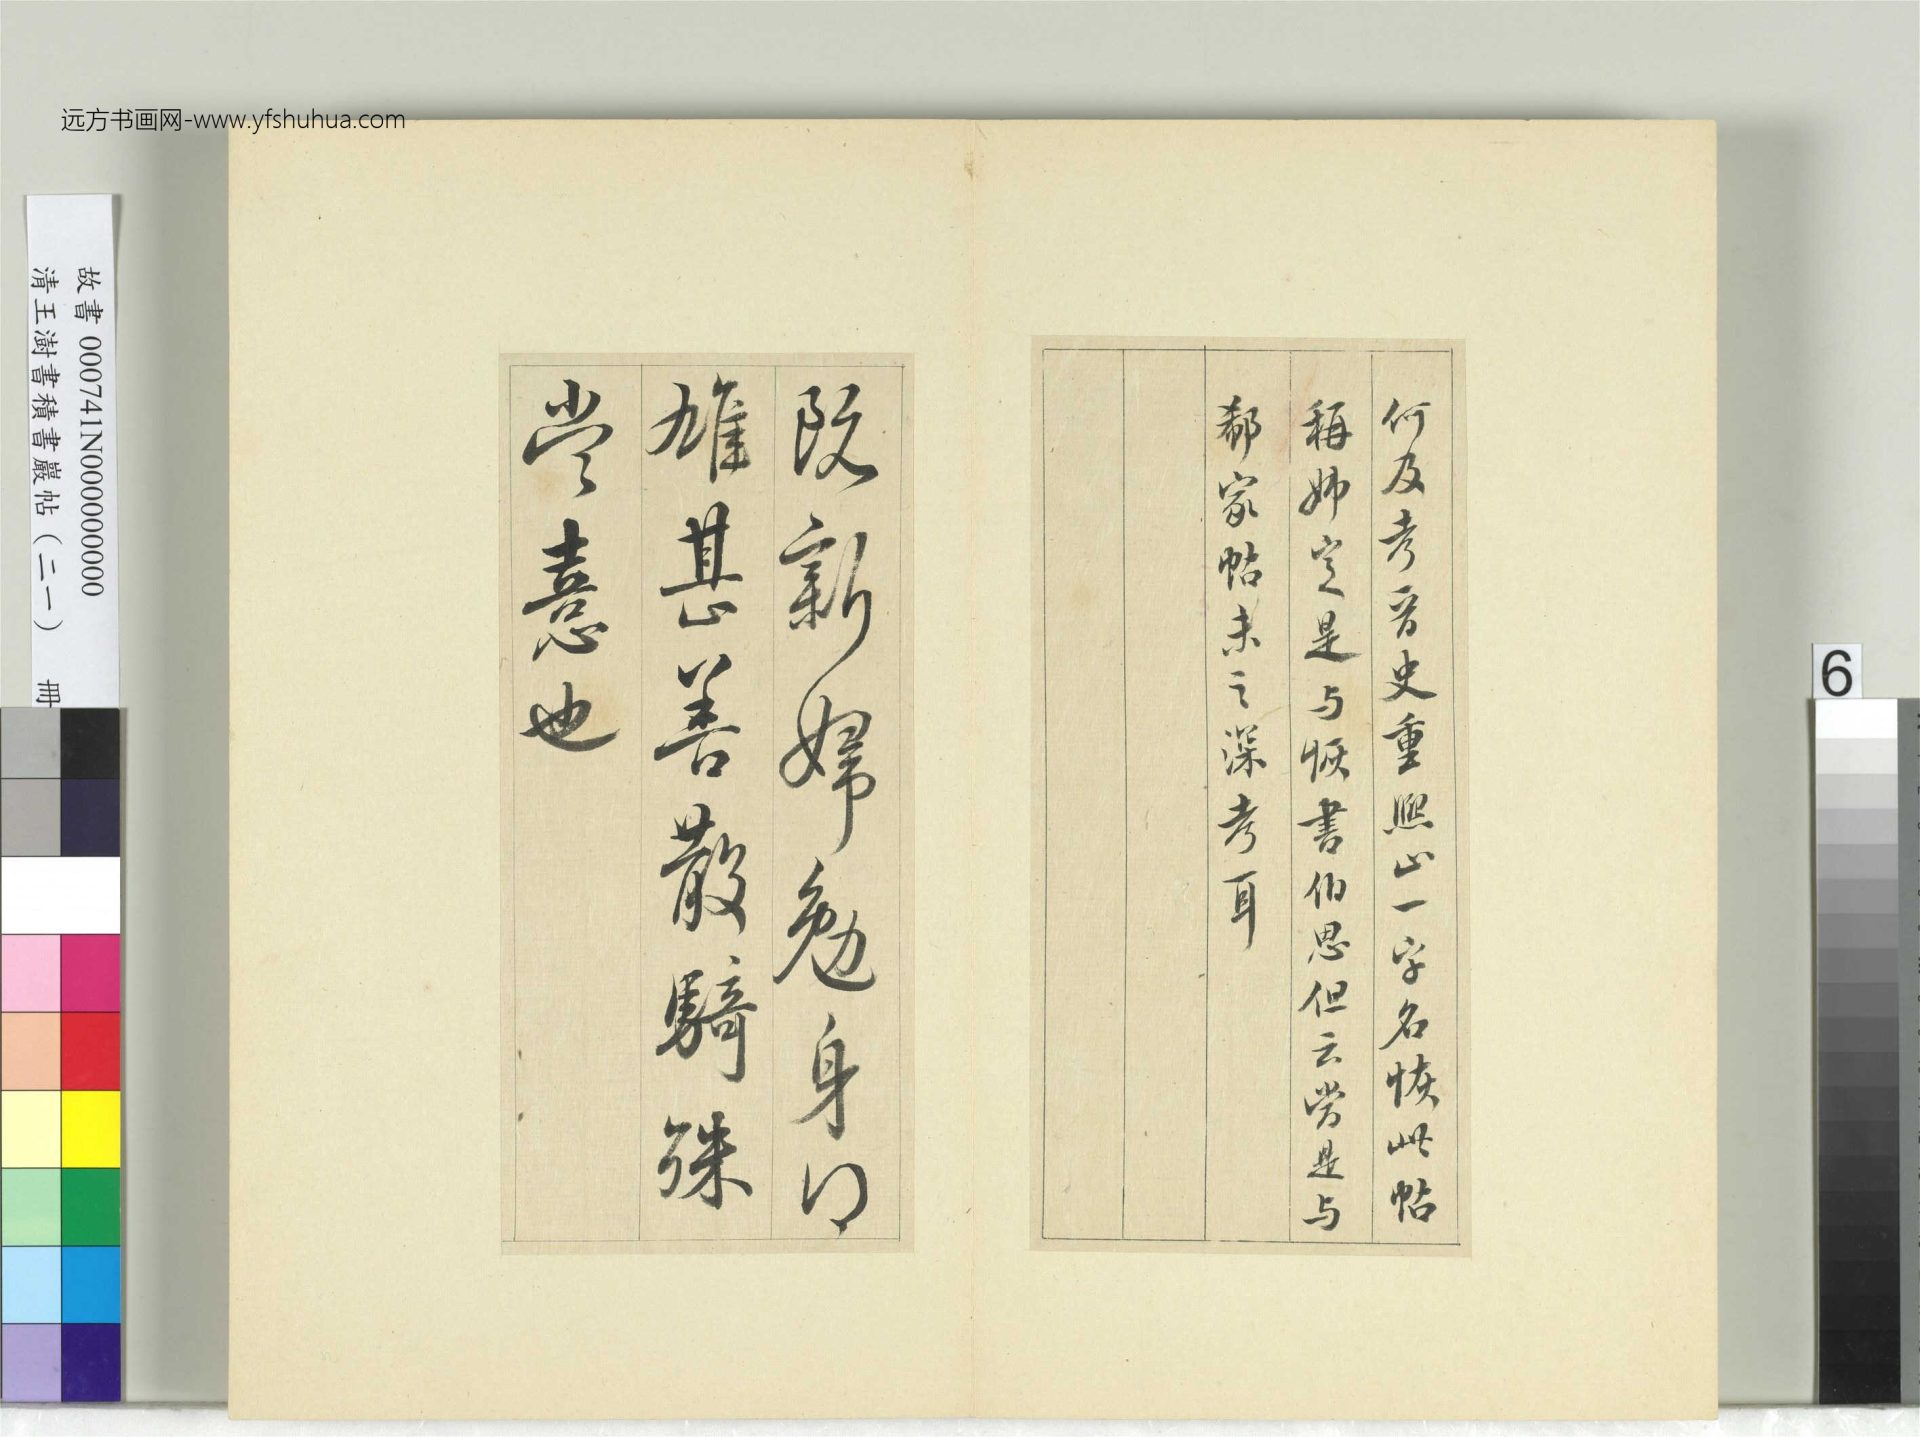 远方书画网-www.yfshuhua.com
故書 000741N000000000
清王澍書積書巖帖（二一） 冊
6
何及考晋史重熙止一字名恢此帖
稱姊定是与恢書伯思但云當是与
郗家帖未之深考耳
既新婦勉身得
雄甚善散騎殊
當憙也